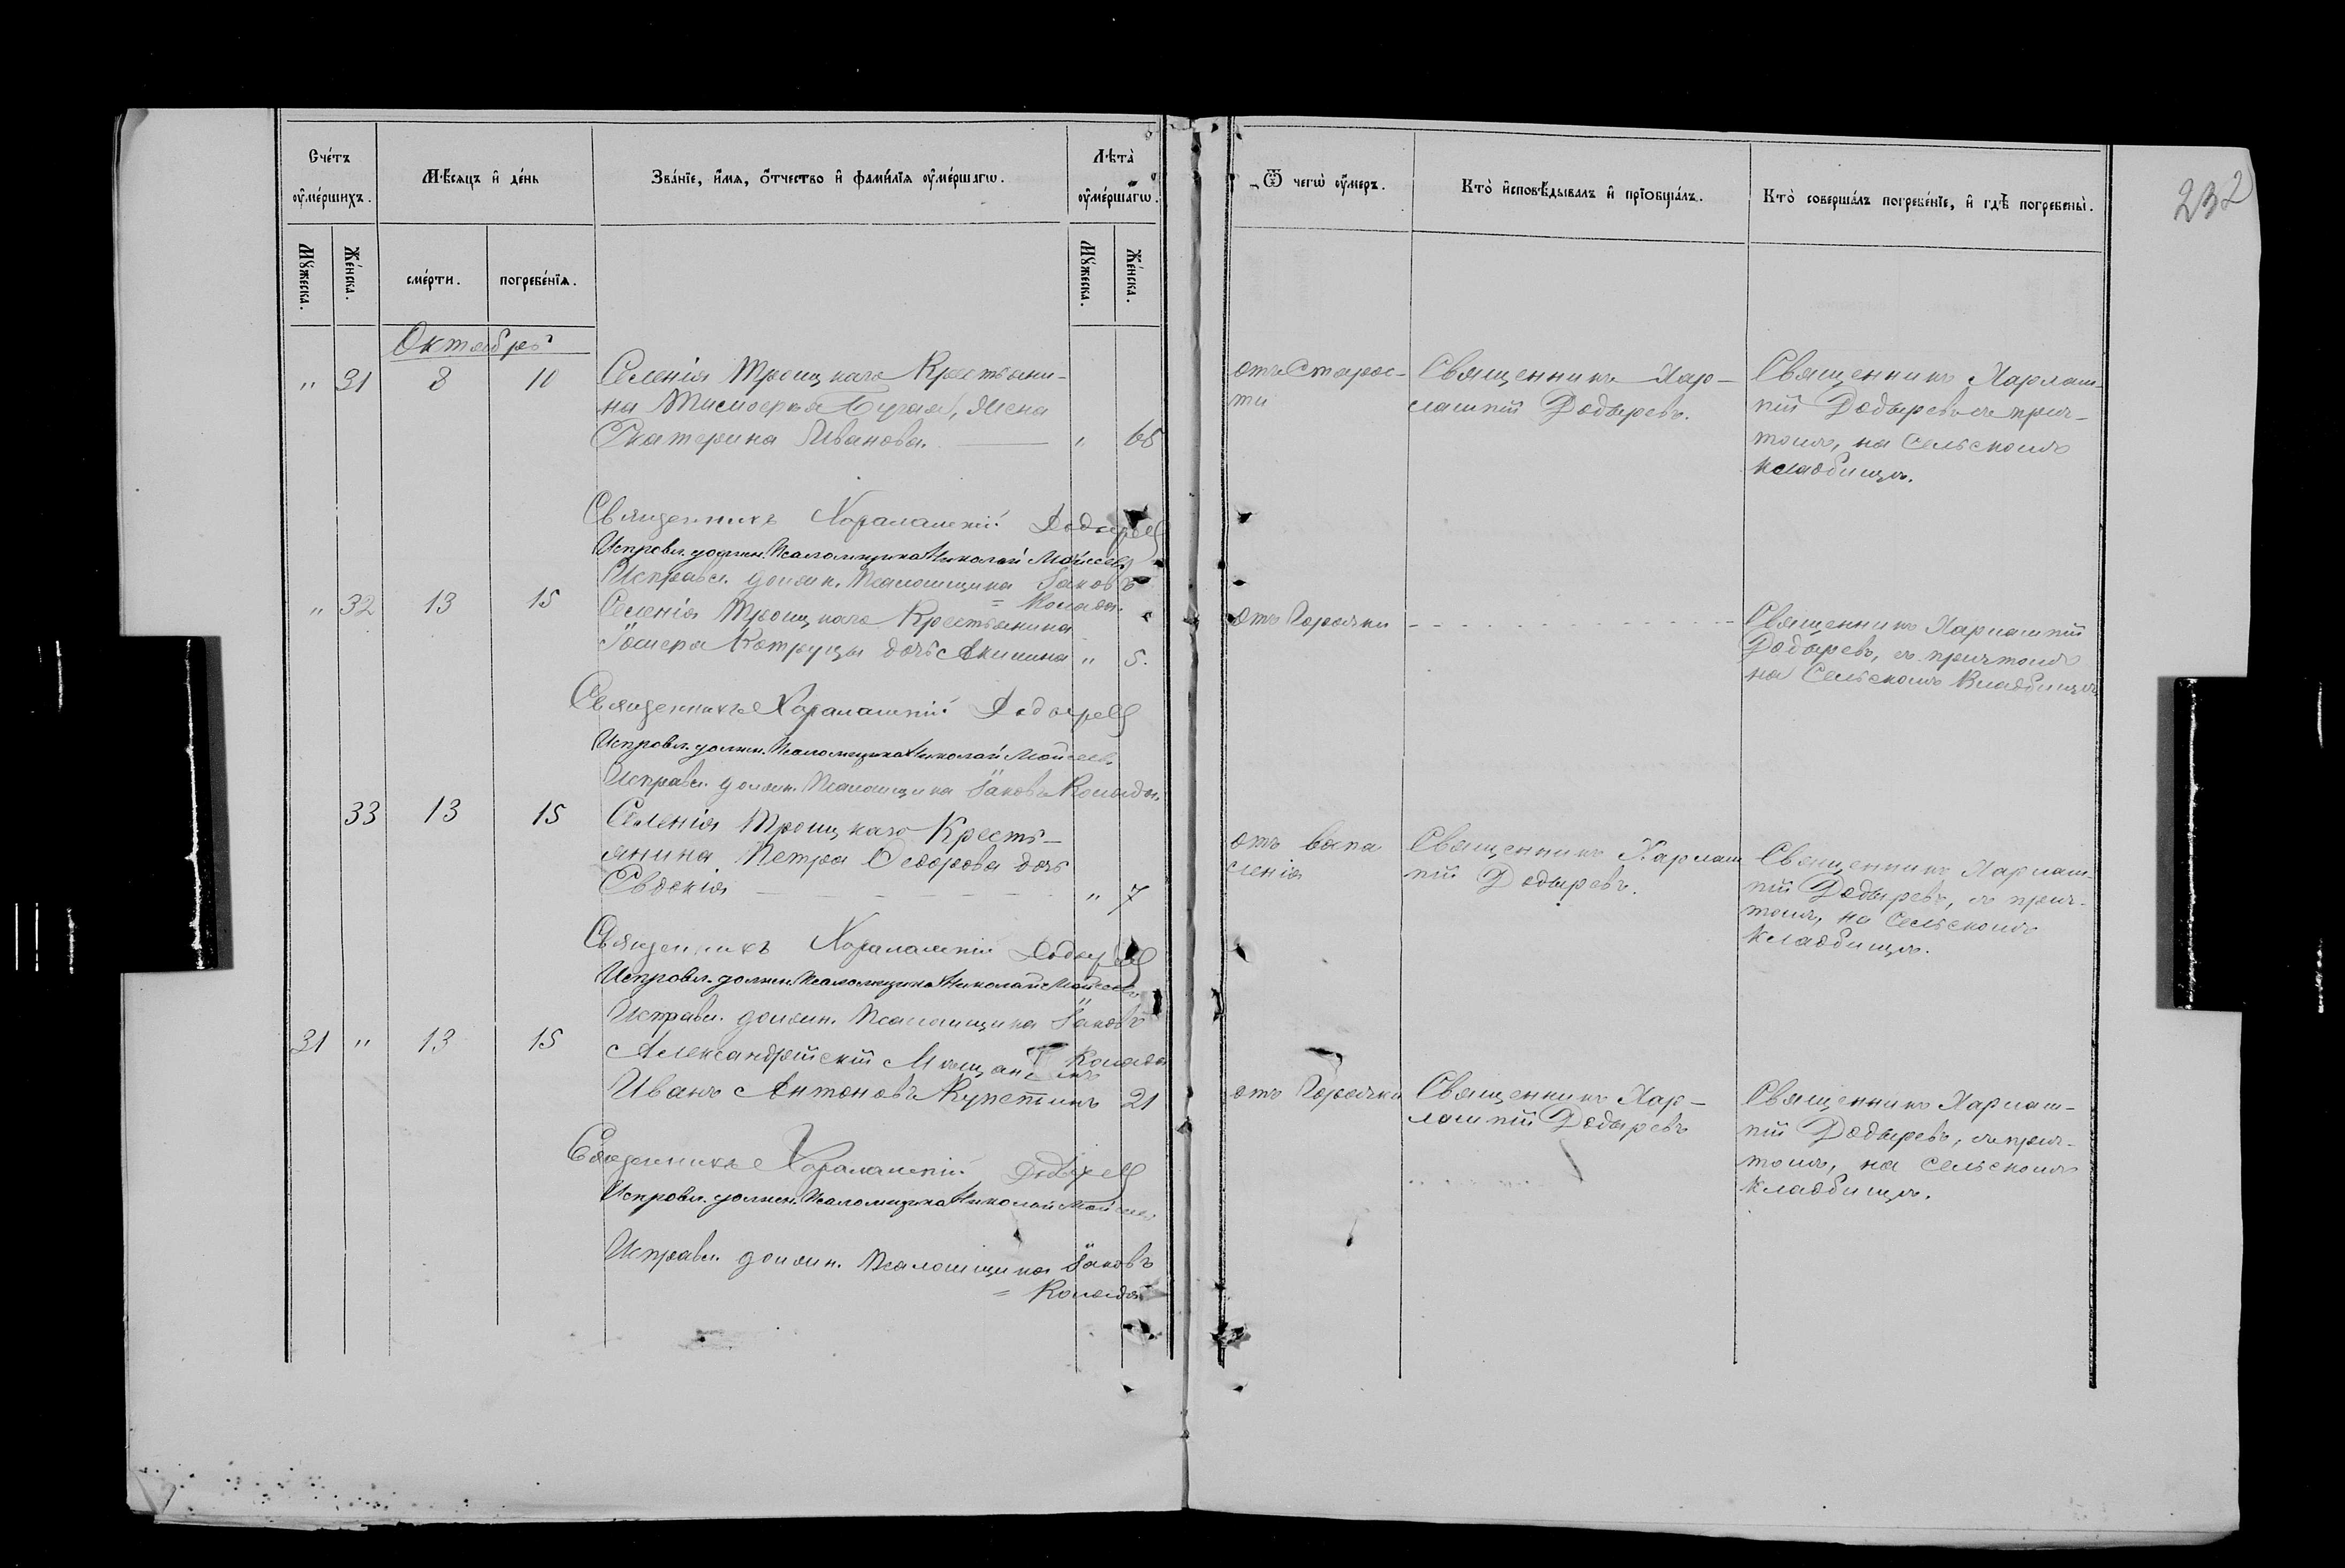 Счетъ оумершихъ.
Мѣсяцъ и день
Званіе, имя, отчество и фамилія оумершагѡ.
Лѣта оумершагѡ.
Ѿ чегѡ оумеръ.
Кто исповѣдывалъ и пріобщалъ.
Кто совершалъ погребеніе, и гдѣ погребены.
232
Мужеска.
Женска.
смерти.
погребенія.
Мужеска.
Женска.
Октябрь
" 31 8 10
Селенія Троицкаго Крестьяни-
на Тимоѳея Бугая, жена
Екатерина Иванова. " 65
отъ старос-
ти
Священникъ Хар-
лампій Додыревъ.
Священникъ Харлам-
пій Додыревъ съ прич-
томъ, на Сельскомъ
кладбищѣ.
Священникъ Харалампій Додыревъ
Исправл. должн. Псаломщика Николай Мойсеевъ
Исправл. должн. Псаломщика Іаковъ
= Коляда.
" 32 13 15
Селенія Троицкаго Крестьянина
Котруцы дочь Акилина " 5.
отъ Горячки
Священникъ Харлампій
Додыревъ, съ причтомъ
на Сельскомъ Кладбищѣ
Священникъ Харалампій Додыревъ
Исправл. должн. Псаломщика Николай Мойсеевъ
Исправл. должн. Псаломщика Іаковъ Коляда.
33 13 15
Селенія Троицкаго Кресть-
янина Петра Ѳедорова дочь
Евдокія " 7
отъ воспа
ленія
Священникъ Харлам
пій Додыревъ.
Священникъ Харлам-
пій Додыревъ, съ прич-
томъ, на Сельскомъ
кладбищѣ.
Священникъ Харалампій Додыревъ
Исправл. должн. Псаломщика Николай Мойсеевъ
Исправл. должн. Псаломщика Іаковъ
Коляда
31 " 13 15
Александрійскій Мѣщанинъ
Иванъ Антоновъ 21
отъ Горячки
Священникъ Хар-
лампій Додыревъ
Священникъ Харлам-
пій Додыревъ, съ прич-
томъ, на Сельскомъ
кладбищѣ.
Священникъ Харалампій Додыревъ
Исправл. должн. Псаломщика Николай Мойсеевъ
Исправл. должн. Псаломщика Іаковъ
= Коляда